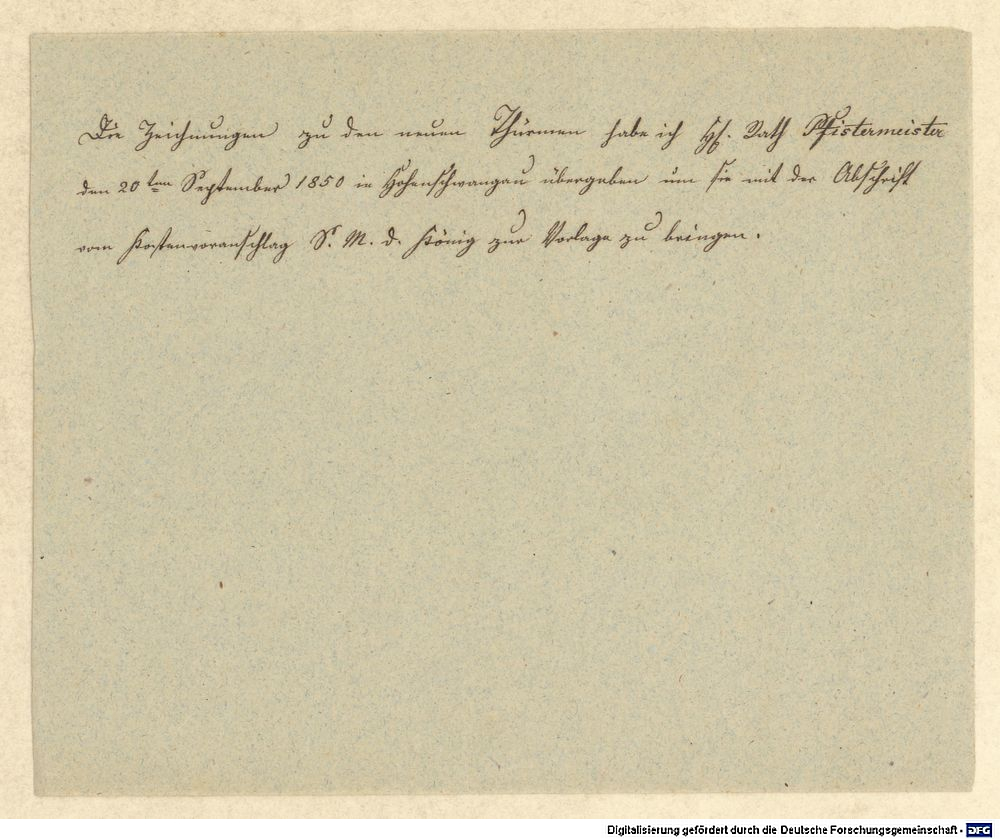 Die Zeichnungen zu den neuen Thürmen habe ich H. Rath Pfistermeister
den 20ten September 1850 in Hohenschwangau übergeben um sie mit der Abschrift
vom Kostenvoranschlag S. M. d. König zur Vorlage zu bringen.
Digitalisierung gefördert durch die Deutsche Forschungsgemeinschaft - DFG